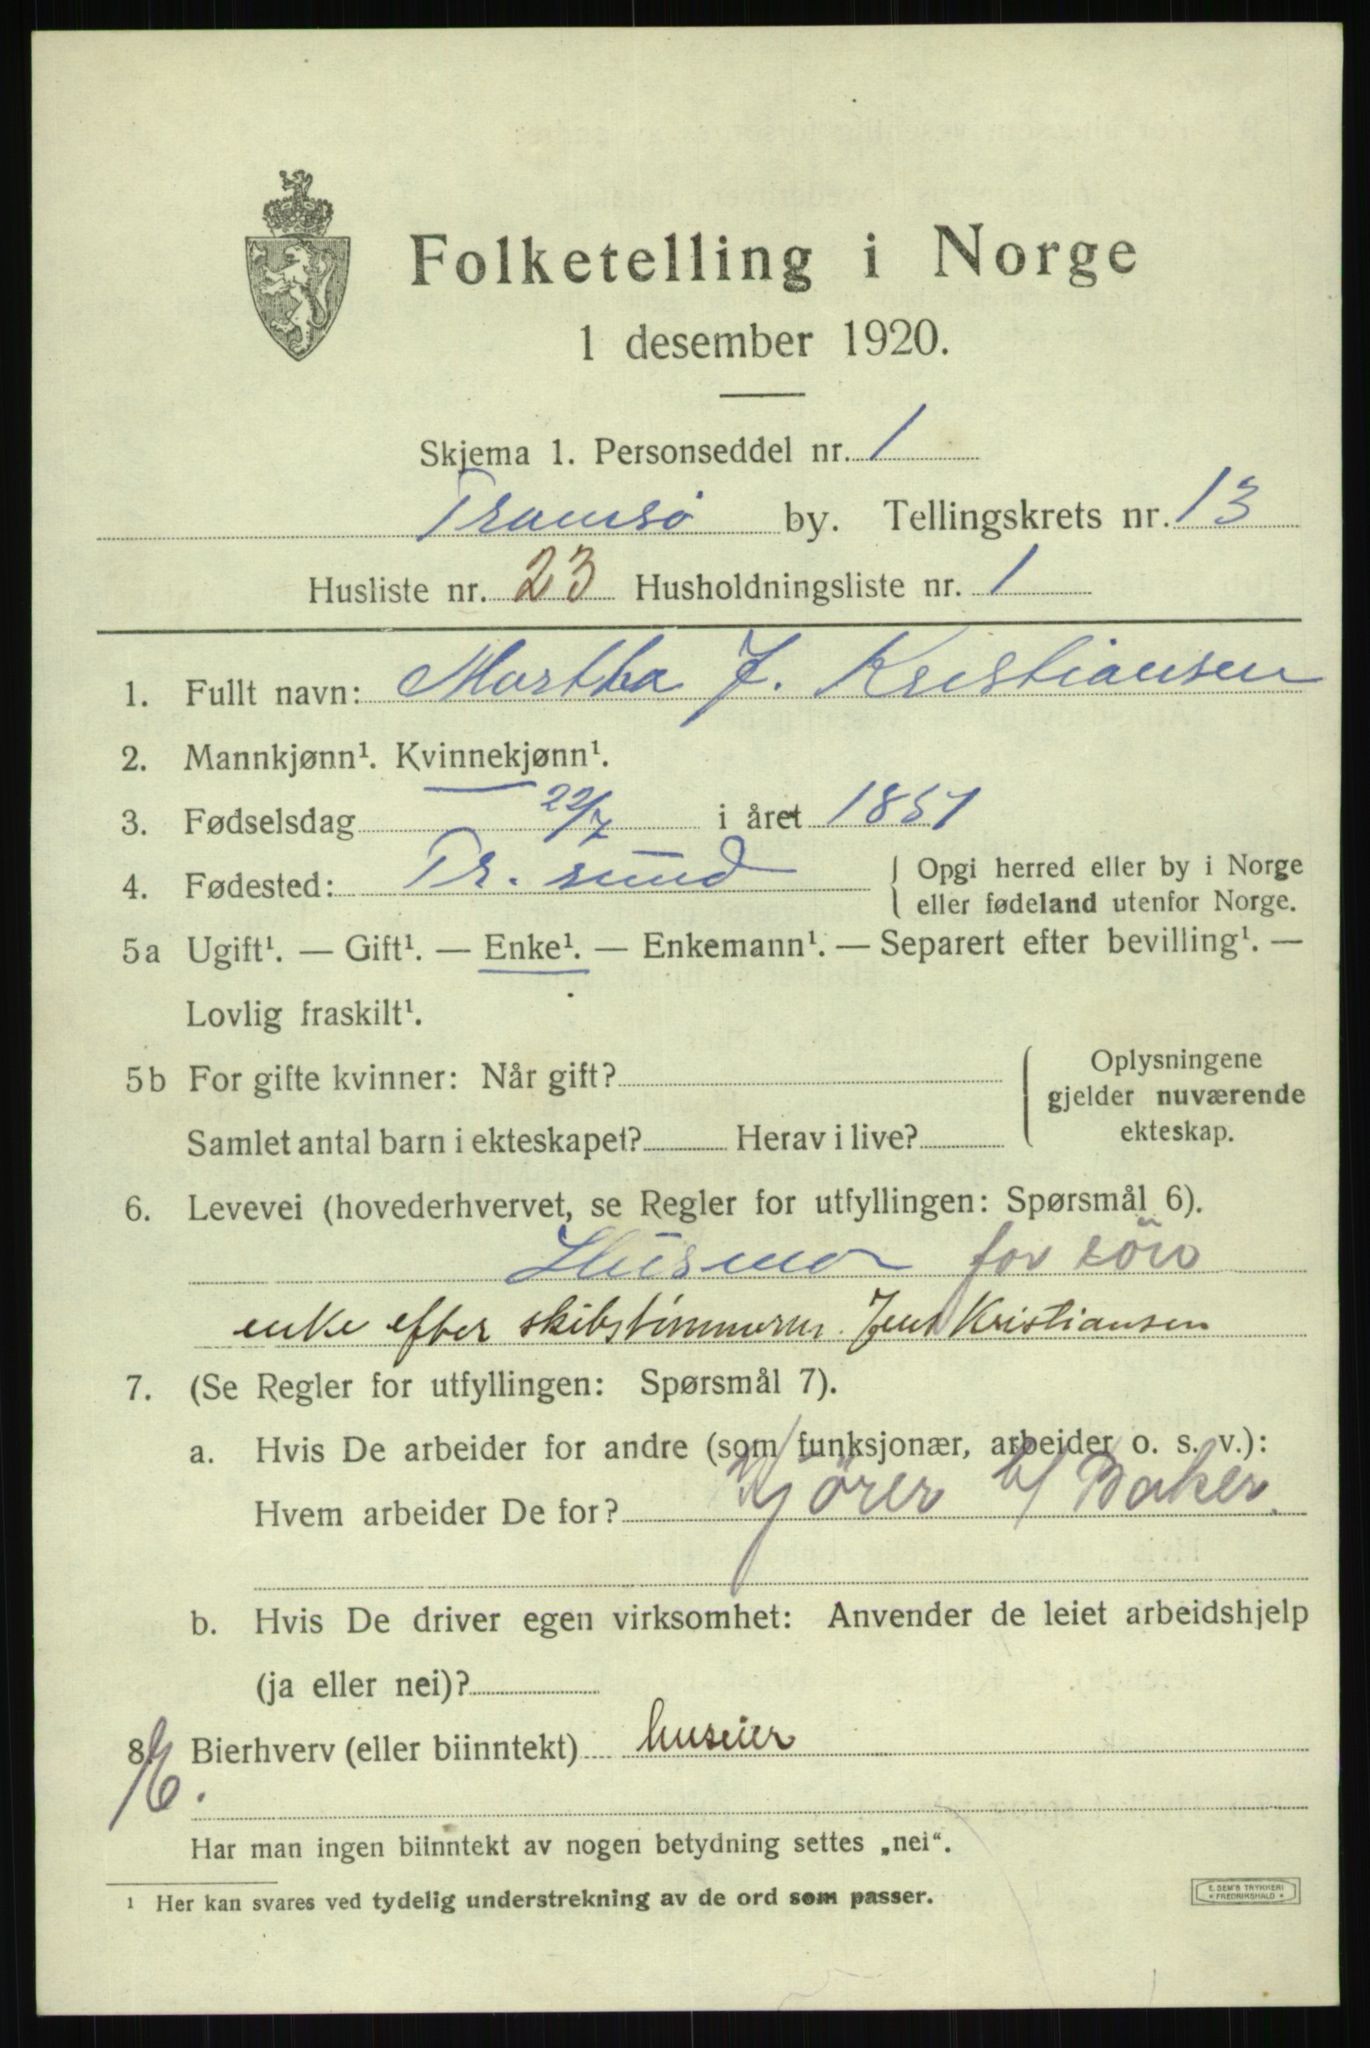 Folketelling i Norge
1 desember 1920.
Skjema 1. Personseddel nr. 1
Tromsø by. Tellingskrets nr. 13
Husliste nr. 23 Husholdningsliste nr. 1
1. Fullt navn: Martha J. Kristiansen
2. Mannkjønn¹. Kvinnekjønn¹.
3. Fødselsdag 22/7 i året 1851
4. Fødested: Tr. sund { Opgi herred eller by i Norge
eller fødeland utenfor Norge.
5a Ugift¹. — Gift¹. — Enke¹. — Enkemann¹. — Separert efter bevilling¹. —
Lovlig fraskilt¹.
5b For gifte kvinner: Når gift? { Oplysningene
gjelder nuværende
Samlet antal barn i ekteskapet? Herav i live? ekteskap.
6. Levevei (hovederhvervet, se Regler for utfyllingen: Spørsmål 6).
Husmor for
enke efter skibstømmerm. Jens Kristiansen
7. (Se Regler for utfyllingen: Spørsmål 7).
a. Hvis De arbeider for andre (som funksjonær, arbeider o. s. v.):
Hvem arbeider De for?
b. Hvis De driver egen virksomhet: Anvender de leiet arbeidshjelp
(ja eller nei)?
8. Bierhverv (eller biinntekt) huseier
Har man ingen biinntekt av nogen betydning settes „nei“.
¹ Her kan svares ved tydelig understrekning av de ord som passer.
E. SEM'S TRYKKERI
* FREDRIKSHALD *